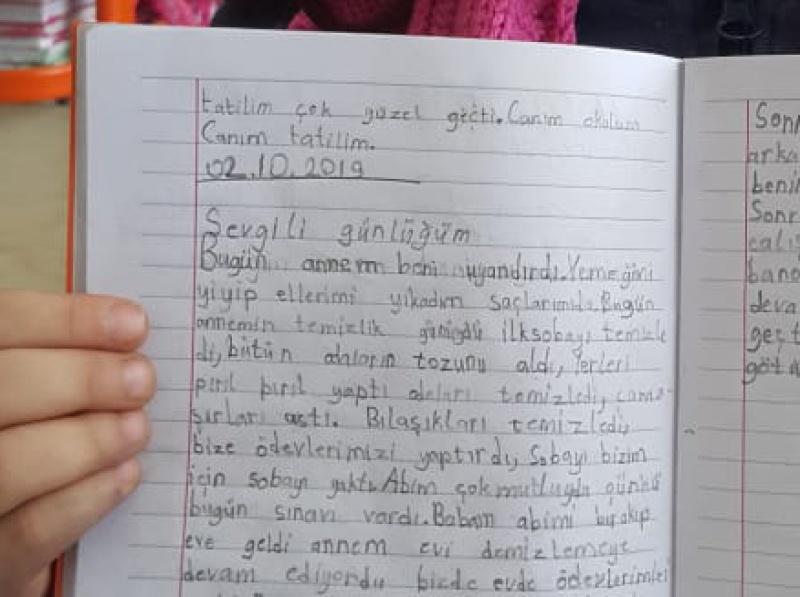 tatilim çok güzel geçti. Canım okulum
Canım tatilim.
02.10.2019
Sevgili günlüğüm
Bugün annem beni uyandırdı. Yemeğimi
yiyip ellerimi yıkadım saçlarımıda. Bugün
annemin temizlik günüydü ilksobayı temizle
di, bütün odaların tozunu aldı, Yerleri
pırıl pırıl yaptı odaları temizledi, çama-
şırları astı. Bılaşıkları temizledi,
bize ödevlerimizi yaptırdı, Sobayı bizim
için sobayı yaktı. Abim çokmutluydu günkü
bugün sınav vardı. Babam abimi bırakıp
eve geldi annem evi demizlemeye
devam ediyordu bizde evde ödevlerimizi
Sonr
arka
benim
Sonr
çalış
bana
deva
geçt
götü